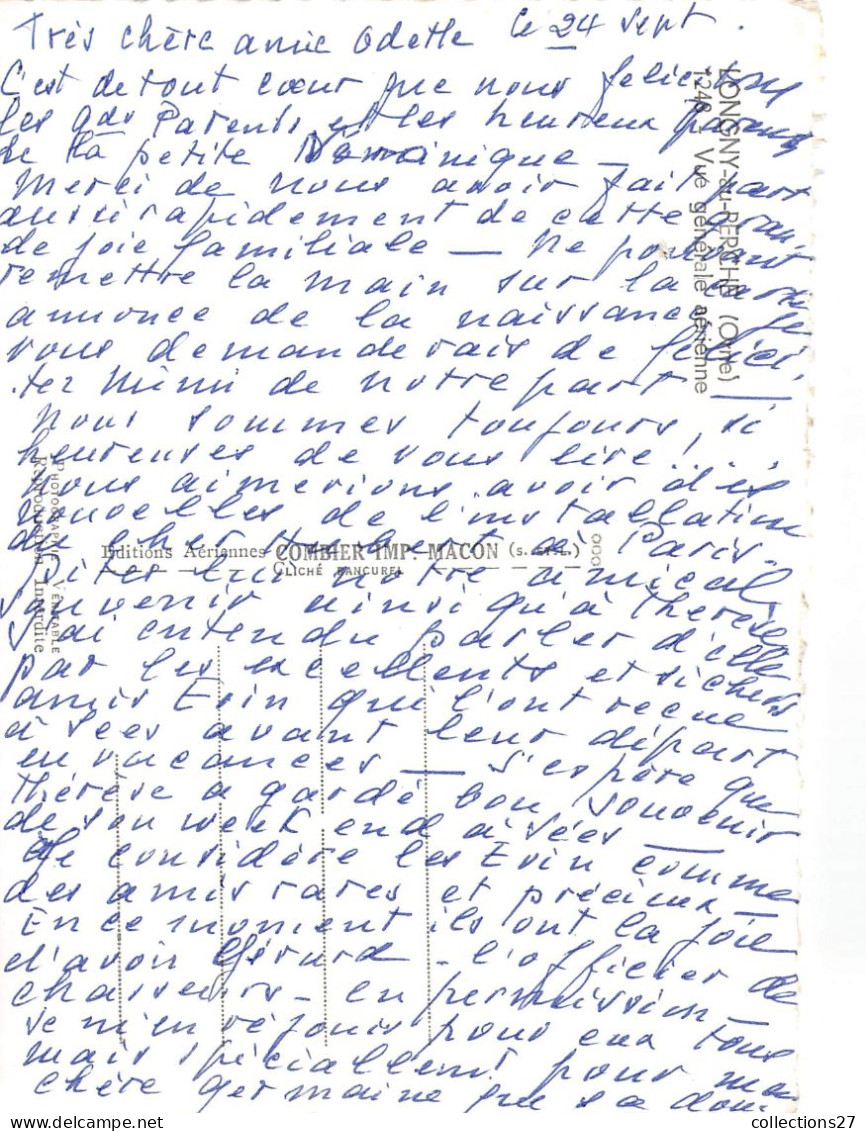 Très chère amie Odette le 24 sept.
C'est de tout cœur que nous felicitons
les gds Parents et les heureux parents
de la petite Dominique —
Merci de nous avoir fait part
aussi rapidement de cette gran-
de joie familiale — Ne pouvant
remettre la main sur la carte
annonce de la naissance je
vous demanderais de félici-
ter Mimi de notre part —
Nous sommes toujours, si
heureuses de vous lire! . . .
Nous aimerions avoir des
nouvelles de l'installation
du cher à Paris.
Dites lui notre amical
souvenir ainsi qu'à Therèse
J'ai entendu parler d'elle
par les excellents et si chers
amis Evin qui l'ont reçue
à Sées avant leur départ
en vacances — J'espère que
Thérèse a gardé bon souvenir
de son week end à Sées —
Je considère les Evin comme
des amis rares et précieux —
En ce moment ils ont la joie
d'avoir Gérard — l'officier de
chasseurs — en permission —
Je m'en réjouis pour eux tous
mais spécialement pour ma
chère Germaine que sa
LONGNY-au-PERCHE (Orne)
1248 Vue générale aérienne
Editions Aériennes COMBIER IMP. MACON (S.-et-L.)
CLICHÉ RANCUREL
PHOTOGRAPHIE VÉRITABLE
Reproduction Interdite
collections27